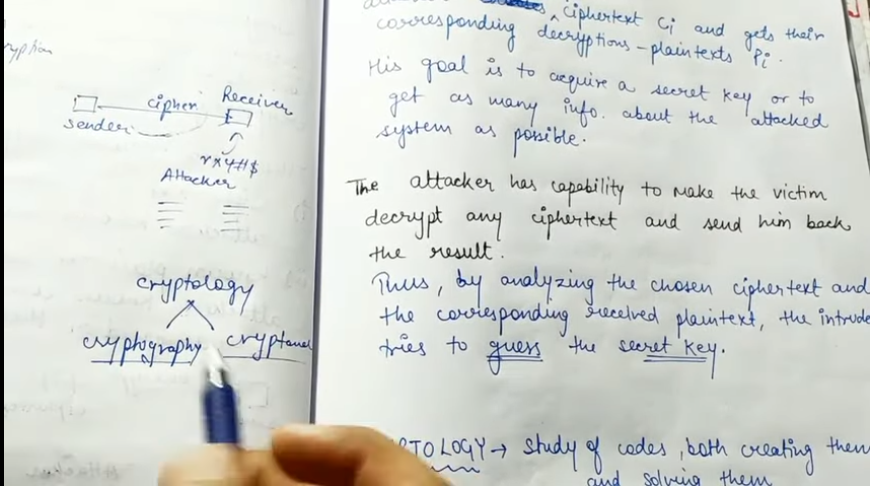 cipher Receiver
sender
rx4#$
Attacker
cryptology
cryptography
ciphertext Ci and gets their
corresponding decryptions - plaintexts Pi.
His goal is to acquire a secret key or to
get as many info. about the attacked
system as possible.
The attacker has capability to make the victim
decrypt any ciphertext and send him back
the result.
Thus, by analyzing the chosen ciphertext and
the corresponding received plaintext, the intrude
tries to guess the secret key.
PTOLOGY → study of codes, both creating them
and solving them